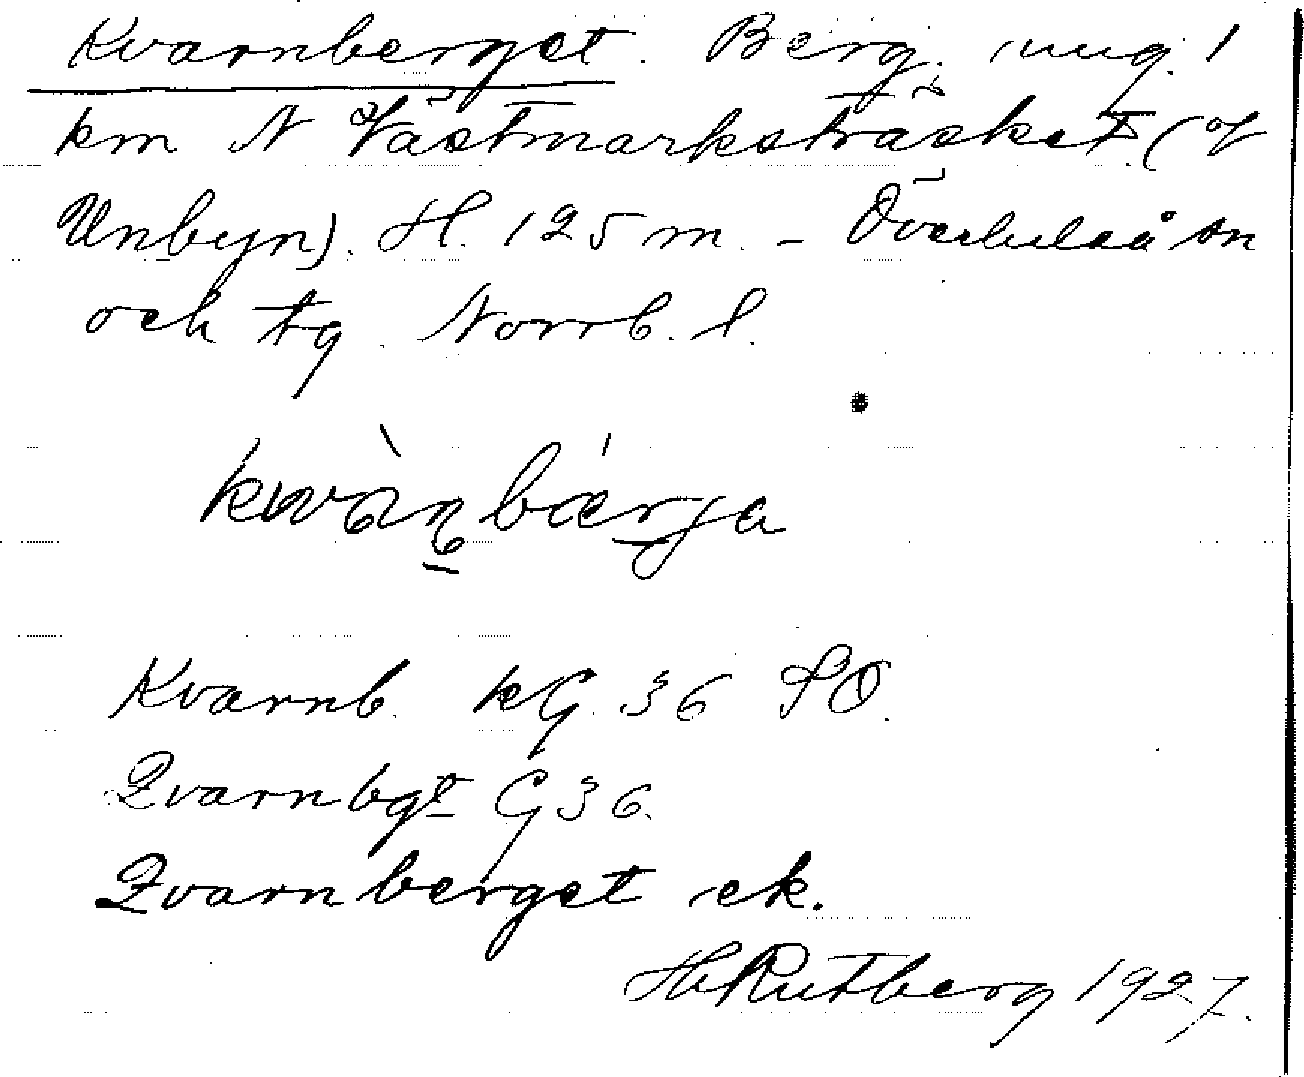 Kvarnberget. Berg. ung. 1
km N Västmarksträsket (of
Unbyn). H. 125 m. - Överluleå sn
och tg. Norrb. l.
kwàṉbárja
Kvarnb. kG. 36 SO.
Qvarnbgt G 36.
Qvarnberget ek.
HRutberg 1927.